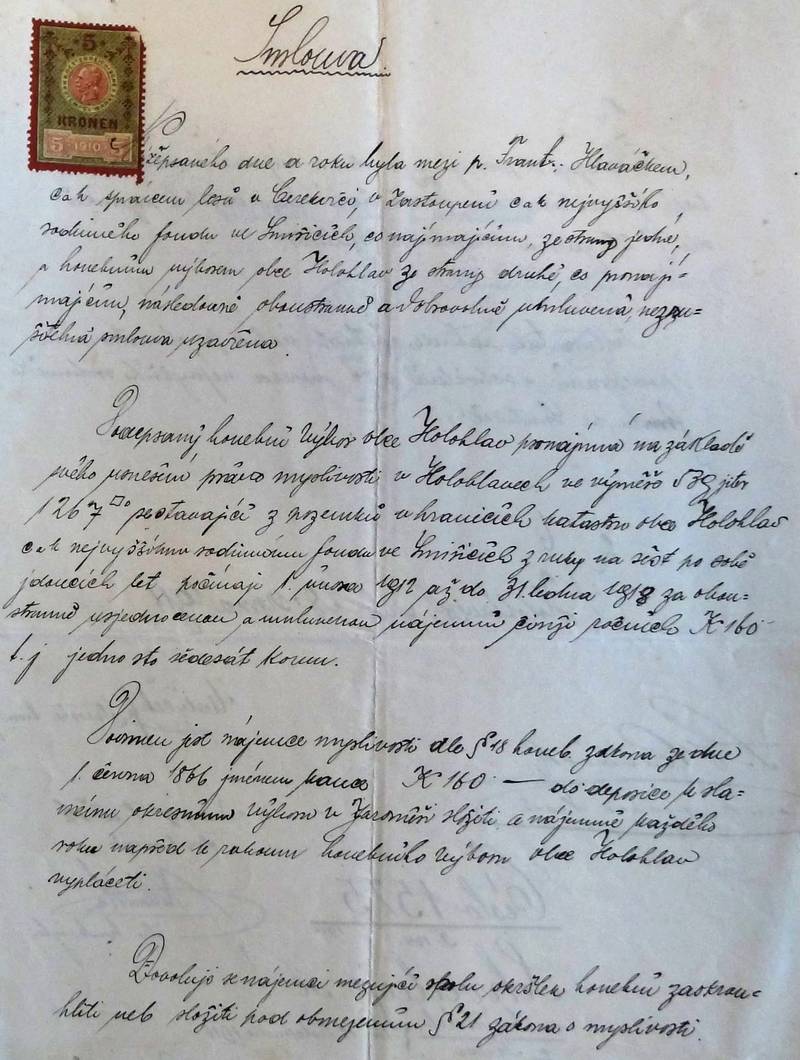 5
KRONEN
5 1910 5
Smlouva.
Nížepsaného dne a roku byla mezi p. Frant. Hlaváčkem,
cak správcem lesů v Cerekvici, v zastoupení cak nejvyššího
rodinného fondu ve Smiřicích, co najímajícím, ze strany jedné,
a honebním výborem obce Holohlav ze strany druhé, co pronají-
majícím, následovně oboustranně a dobrovolně umluvená, nezru-
šitelná smlouva uzavřena.
Podepsaný honební výbor obce Holohlav pronajímá na základě
svého usnešení právo myslivosti v Holohlavech ve výměře jiter
1267□° sestávající z pozemků v hranicích katastru obce Holohlav
cak nejvyššímu rodinnému fondu ve Smiřicích z ruky na šest po sobě
jdoucích let počínaje 1. února 1912 až do 31. ledna 1918 za obou-
stranně ujednocenou a umluvenou nájemní činži ročních K 160
t. j jedno sto šedesát korun.
Povinen jest nájemce myslivosti dle § 18 honeb. zákona ze dne
1. června 1866 jménem kauce K 160 — do deposice k sla-
vnému okresnímu výboru v Jaroměři složiti a nájemné každého
roku napřed k rukoum honebního výboru obce Holohlav
vypláceti.
Dovoluje se nájemci mezující spolu okršlek honební zaokrou-
hliti neb složiti pod obmezením § 21 zákona o myslivosti.